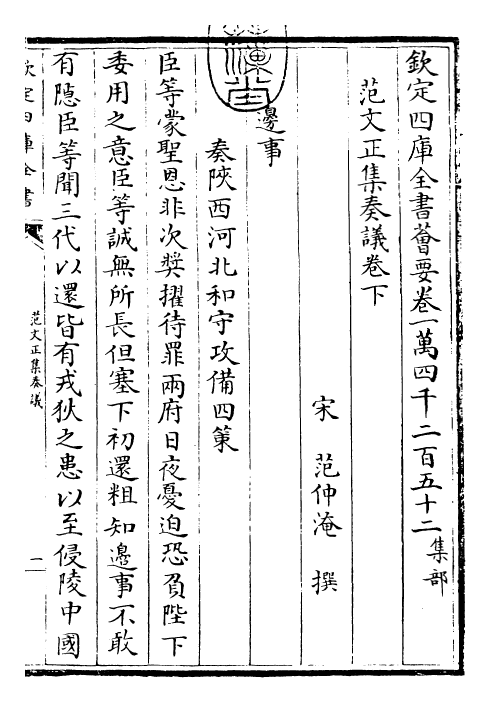 欽定四庫全書薈要卷一萬四千二百五十二集部
范文正集奏議卷下
宋 范仲淹 撰
邊事
奏陝西河北和守攻備四策
臣等蒙聖恩非次奬擢待罪兩府日夜憂迫恐負陛下
委用之意臣等誠無所長但塞下初還粗知邊事不敢
有隱臣等聞三代以還皆有戎狄之患以至侵陵中國
欽定四庫全書
范文正集奏議
一